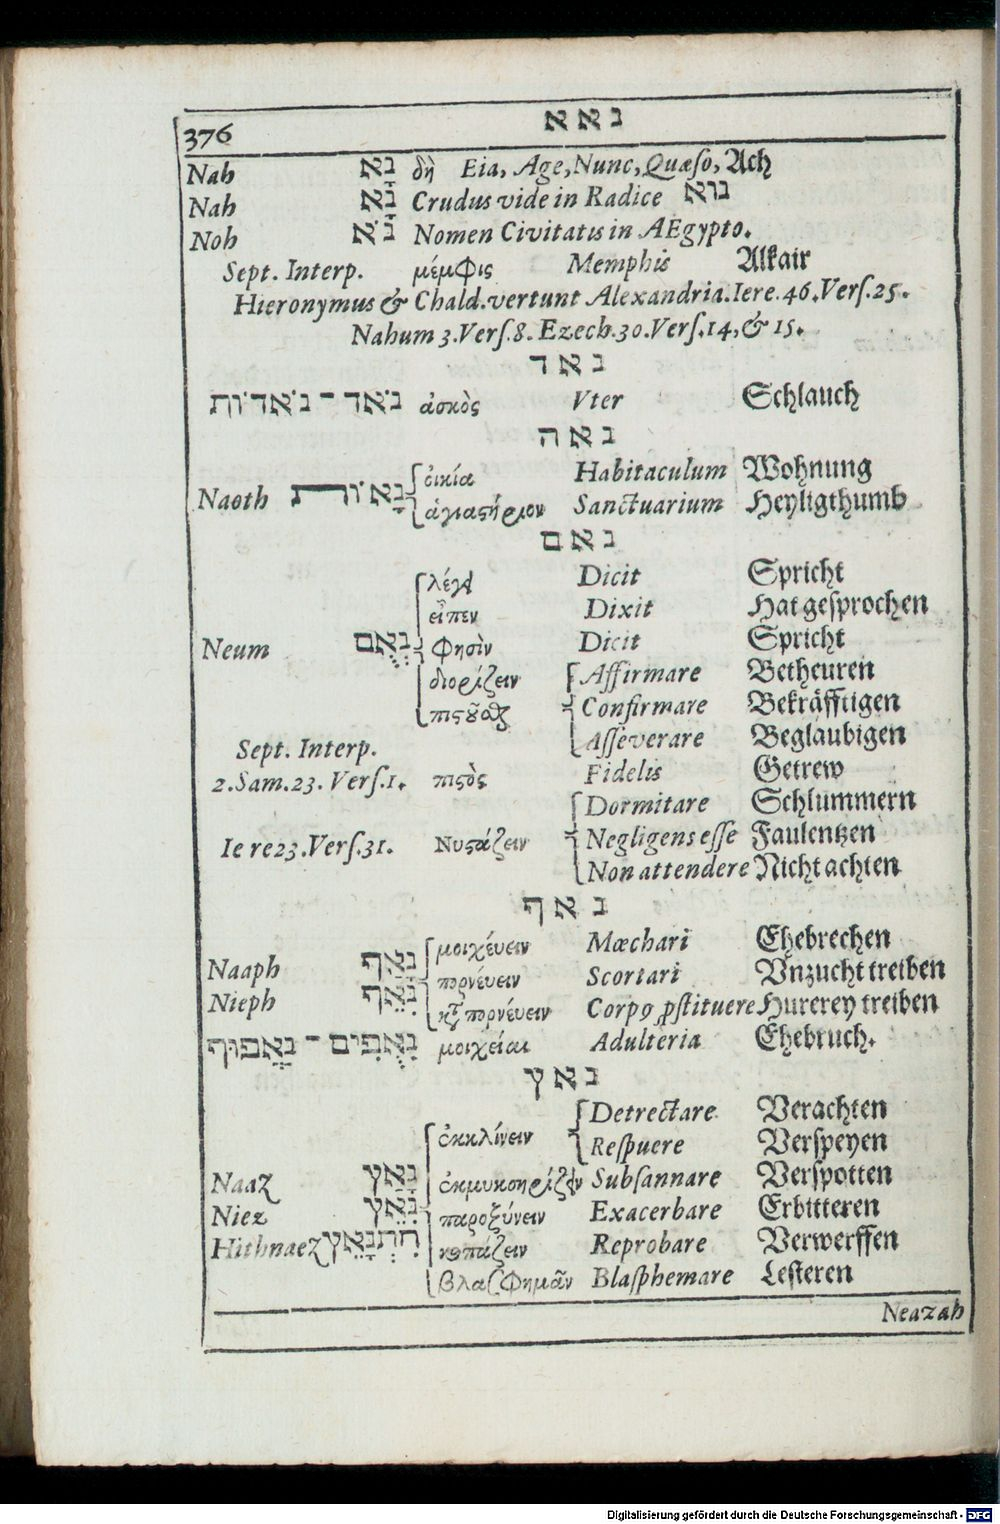 376 נ א א
Nah נָא δὴ Eia, Age, Nunc, Quæſo, Ach
Nah נָא Crudus vide in Radice נוא
Noh נֹא Nomen Civitatis in AEgypto.
Sept. Interp. μέμφις Memphis Alkair
Hieronymus & Chald. vertunt Alexandria. Iere. 46. Verſ. 25.
Nahum 3. Verſ. 8. Ezech. 30. Verſ. 14, & 15.
נ א ד
נֹאד - נֹאדוֹת ἀσκὸς Vter Schlauch
נ א ה
οἰκία Habitaculum Wohnung
Naoth נָאוֹת ἁγιαστήριον Sanctuarium Heyligthumb
נ א ם
λέγει Dicit Spricht
εἶπεν Dixit Hat geſprochen
Neum נְאֻם φησὶν Dicit Spricht
διορίζειν Affirmare Betheuren
πιστοῦσθαι Confirmare Bekräfftigen
Aſſeverare Beglaubigen
Sept. Interp.
2. Sam. 23. Verſ. 1. πιστὸς Fidelis Getrew
Dormitare Schlummern
Ie re 23. Verſ. 31. Νυστάζειν Negligens eſſe Faulentzen
Non attendere Nicht achten
נ א ף
μοιχέυειν Mœchari Ehebrechen
Naaph נָאַף πορνέυειν Scortari Vnzucht treiben
Nieph נִאֵף πορνέυειν Corpꝰ ꝓſtituere Hurerey treiben
נַאֲפוּף - נִאֻפִים μοιχείαι Adulteria Ehebruch.
נ א ץ
Detrectare Verachten
ἐκκλίνειν Reſpuere Verſpeyen
Naaz נָאַץ ἐκμυκτηρίζειν Subſannare Verſpotten
Niez נִאֵץ παροξύνειν Exacerbare Erbitteren
Hithnaez הִתְנָאֵץ Reprobare Verwerffen
βλασφημᾶν Blaſphemare Leſteren
Neazah
Digitalisierung gefördert durch die Deutsche Forschungsgemeinschaft - DFG